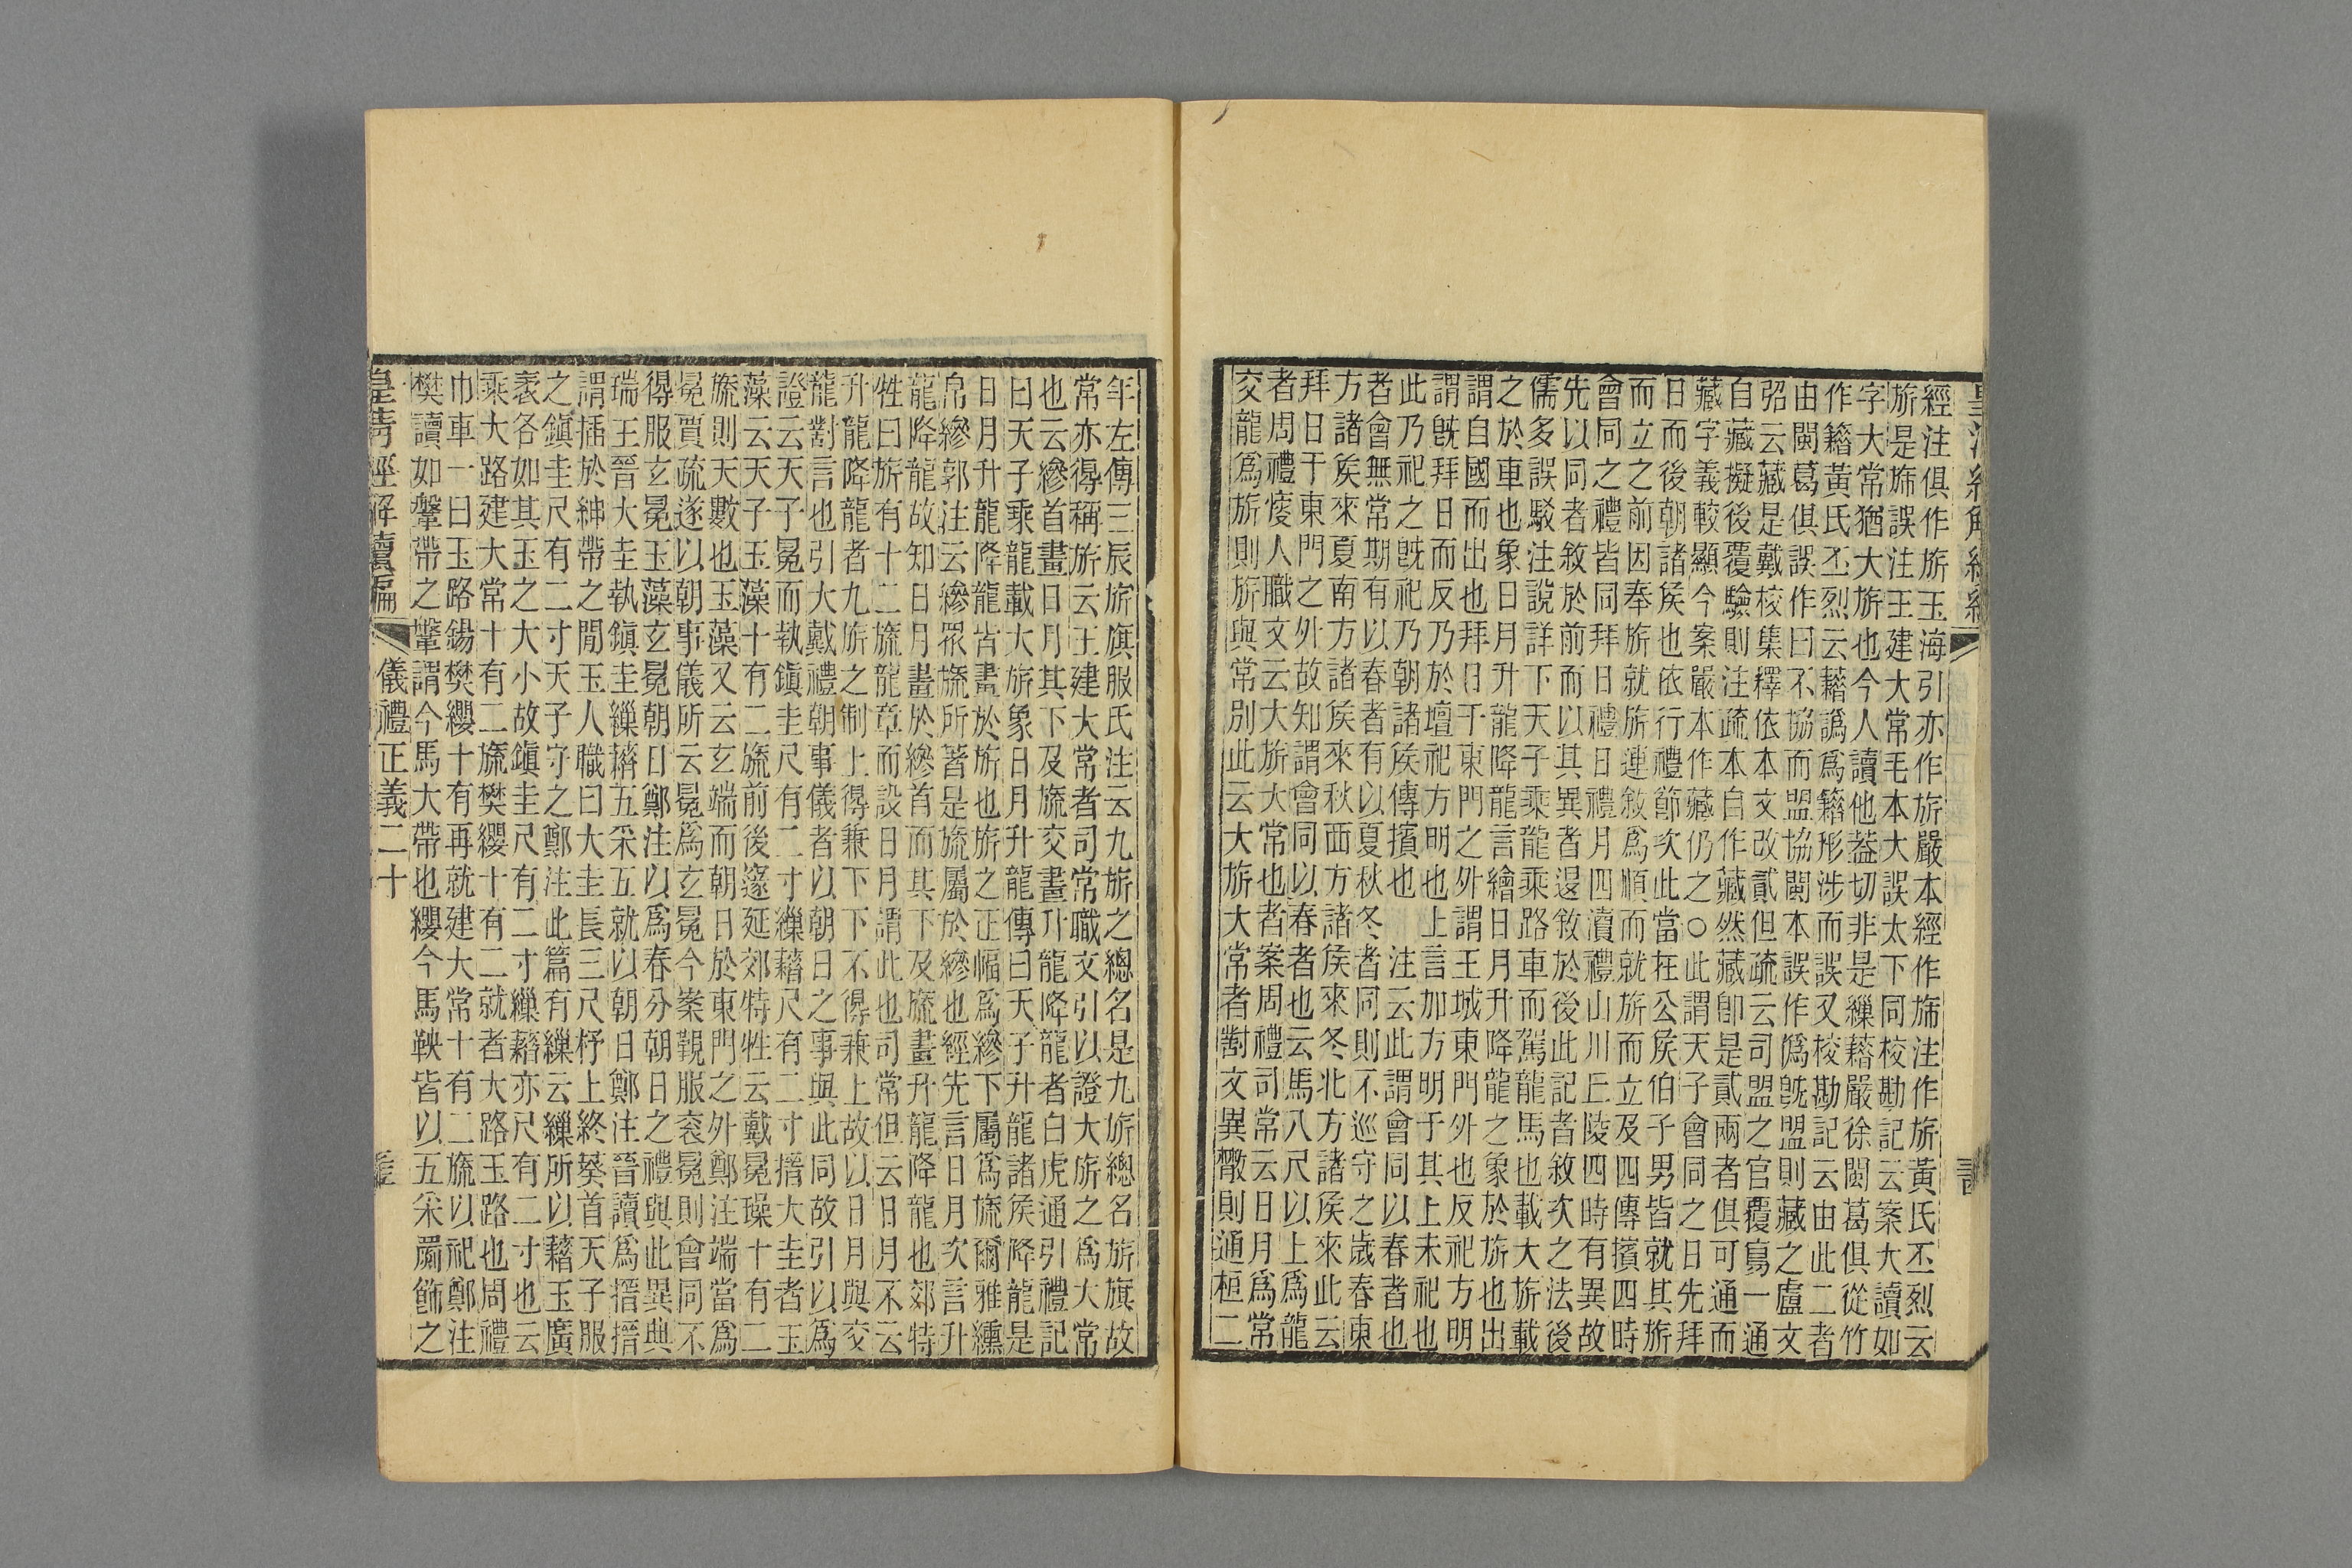 經注俱作旂玉海引亦作旂嚴本經作旆注作旂黃氏丕烈云
旂是旆誤注王建大常毛本大誤太下同校勘記云案大讀如
字大常猶大旂也今人讀他蓋切非是繅藉嚴徐閩葛俱從竹
作籍黃氏丕烈云藉譌為籍形涉而誤又校勘記云由此二者
由閩葛俱誤作曰不協而盟協閩本誤作僞旣盟則藏之盧文
弨云藏是戴校集釋依本文改貳但疏云司盟之官覆寫一通
自藏擬後覆驗則注疏本自作藏然藏卽是貳兩者俱可通而
藏字義較顯今案嚴本作藏仍之○此謂天子會同之日先拜
日而後朝諸矦也依行禮節次此當在公矦伯子男皆就其旂
而立之前因奉旂就旂連敘為順而就旂而立及四傳擯四時
會同之禮皆同拜日禮日禮月四瀆禮山川丘陵四時有異故
先以同者敘於前而以其異者退敘於後此記者敘次之法後
儒多誤駁注說詳下天子乘龍乘路車而駕龍馬也載大旂載
之於車也象日月升龍降龍言繪日月升降龍之象於旂也出
謂自國而出也拜日于東門之外謂王城東門外也反祀方明
謂旣拜日而反乃於壇祀方明也上言加方明于其上未祀也
此乃祀之旣祀乃朝諸矦傳擯也　注云此謂會同以春者也
者會無常期有以春者有以夏秋冬者同則不巡守之歲春東
方諸矦來夏南方諸矦來秋西方諸矦來冬北方諸矦來此云
拜日于東門之外故知謂會同以春者也云馬八尺以上為龍
者周禮廋人職文云大旂大常也者案周禮司常云日月為常
交龍為旂則旂與常別此云大旂大常者對文異散則通桓二
年左傳三辰旂旗服氏注云九旂之總名是九旂總名旂旗故
常亦得稱旂云王建大常者司常職文引以證大旂之為大常
也云縿首畫日月其下及旒交畫升龍降龍者白虎通引禮記
曰天子乘龍載大旂象日月升龍傳曰天子升龍諸矦降龍是
日月升龍降龍皆畫於旂也旂之正幅為縿下屬為旒爾雅纁
帛縿郭注云縿眾旒所著是旒屬於縿也經先言日月次言升
龍降龍故知日月畫於縿首而其下及旒畫升龍降龍也郊特
牲曰旂有十二旒龍章而設日月謂此也司常但云日月不云
升龍降龍者九旂之制上得兼下下不得兼上故以日月與交
龍對言也引大戴禮朝事儀者以朝日之事與此同故引以為
證云天子冕而執鎮圭尺有二寸繅藉尺有二寸搢大圭者玉
藻云天子玉藻十有二旒前後邃延郊特牲云戴冕璪十有二
旒則天數也玉藻又云玄端而朝日於東門之外鄭注端當為
冕賈疏遂以朝事儀所云冕為玄冕今案覲服袞冕則會同不
得服玄冕玉藻玄冕朝日鄭注以為春分朝日之禮與此異與
瑞王晉大圭執鎮圭繅藉五采五就以朝日鄭注晉讀為搢搢
謂插於紳帶之閒玉人職曰大圭長三尺杼上終葵首天子服
之鎮圭尺有二寸天子守之鄭注此篇有繅云繅所以藉玉廣
袤各如其玉之大小故鎮圭尺有二寸繅藉亦尺有二寸也云
乘大路建大常十有二旒樊纓十有二就者大路玉路也周禮
巾車一曰玉路錫樊纓十有再就建大常十有二旒以祀鄭注
樊讀如鞶帶之鞶謂今馬大帶也纓今馬鞅皆以五采罽飾之
皇清經解續編　儀禮正義二十